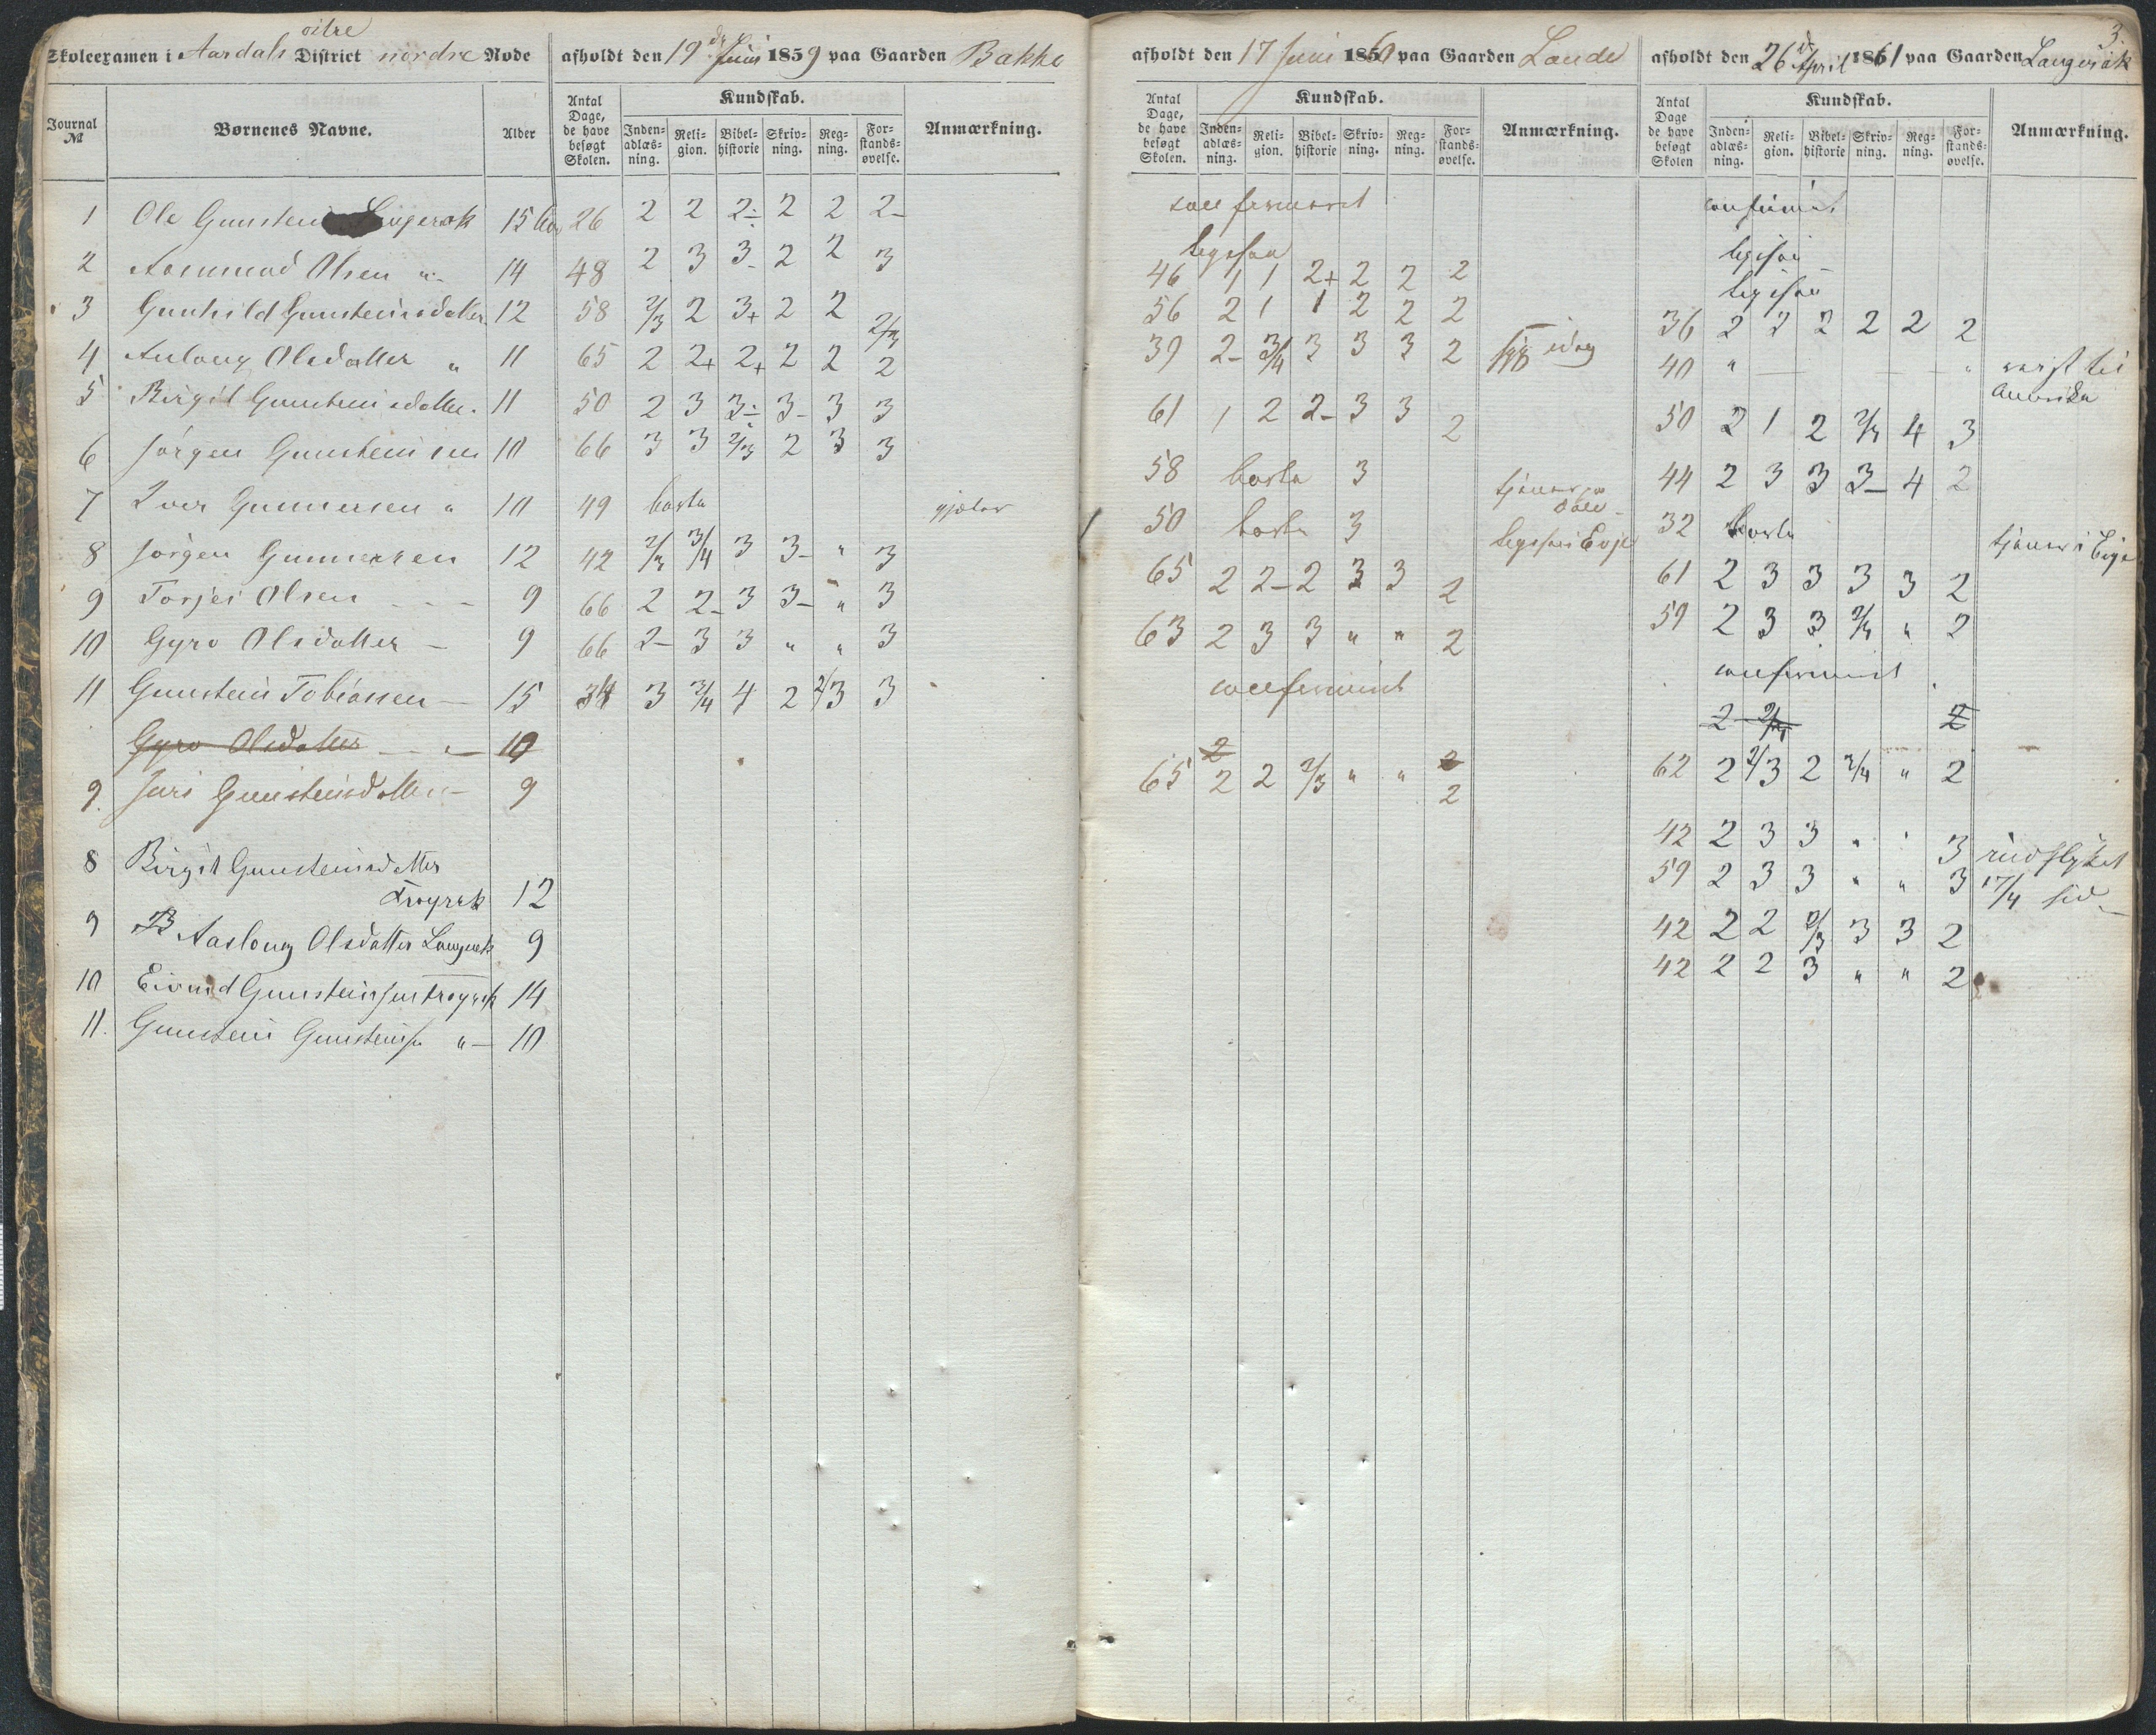 oitre
Skoleexamen i Aardals District nordre Rode
afholdt den 19 de Juni 1859 paa Gaarden Bakke
Journal № Børnenes Navne. Alder
Antal Dage, de have besøgt Skolen. Kundskab. Anmærkning.
Inden-adlæs-ning. Reli-gion. Bibel-historie Skriv-ning. Reg-ning. For-stands-øvelse.
1 Ole Gunstein 15 26 2 2 2÷ 2 2 2-
2 Aasmund Olsen " 14 48 2 3 3- 2 2 3
3 Gunhild Gunsteinsdatter 12 58 2/3 2 3+ 2 2 2/3
4 Aslaug Olsdatter " 11 65 2 2+ 2+ 2 2 2
5 Birgit Gunsteinsdatter. 11 50 2 3 3÷ 3- 3 3
6 Jørgen Gunsteinsen 10 66 3 3 2/3 2 3 3
7 Iver Gunnersen " 10 49 borte gjæter
8 Jørgen Gunnersen 12 42 2/3 3/4 3 3- " 3
9 Torjei Olsen 9 66 2 2- 3 3- " 3
10 Gyro Olsdatter - 9 66 2- 3 3 " " 3
11 Gunstein Tobiassen - 15 34 3 3/4 4 2 2/3 3
Gyro Olsdatter 10
9. Juri Gunsteinsdatter - 9
8 Birgit Gunsteinsdatter
12
9 Aaslaug Olsdatter 9
10 Eivind Gunsteinsen 14
11. Gunstein Gunsteins " - 10
3.
afholdt den 17 Juni 1860 paa Gaarden Lande
Antal Dage, de have besøgt Skolen. Kundskab. Anmærkning.
Inden-adlæs-ning. Reli-gion. Bibel-historie Skriv-ning. Reg-ning. For-stands-øvelse.
confirmeret
ligesaa
46 1 1 2+ 2 2 2
56 2 1 1 2 2 2
39 2- 3/4 3 3 3 2 idag
61 1 2 2- 3 3 2
58 borte 3 tjener
50 borte 3 Evje
65 2 2- 2 3 3 2
63 2 3 3 " " 2
confirmeret
2 2
65 2 2 2/3 " " 2
afholdt den 26 de April 1861 paa Gaarden Langerak
Antal Dage de have besøgt Skolen Kundskab. Anmærkning.
Inden-adlæs-ning. Reli-gion. Bibel-historie Skriv-ning. Reg-ning. For-stands-øvelse.
confirmeret
ligesaa
ligesaa
36 2 2 2 2 2 2
40 " " reist til
Amerika
50 2 1 2 3/4 4 3
44 2 3 3 3- 4 2
32 borte tjener i Evje
61 2 3 3 3 3 2
59 2 3 3 3/4 " 2
confirmeret
2 2
62 2 2/3 2 3/4 " 2
42 2 3 3 " " 3 indflyttet
59 2 3 3 " " 3 17/4
42 2 2 2/3 3 3 2
42 2 2 3 " " 2